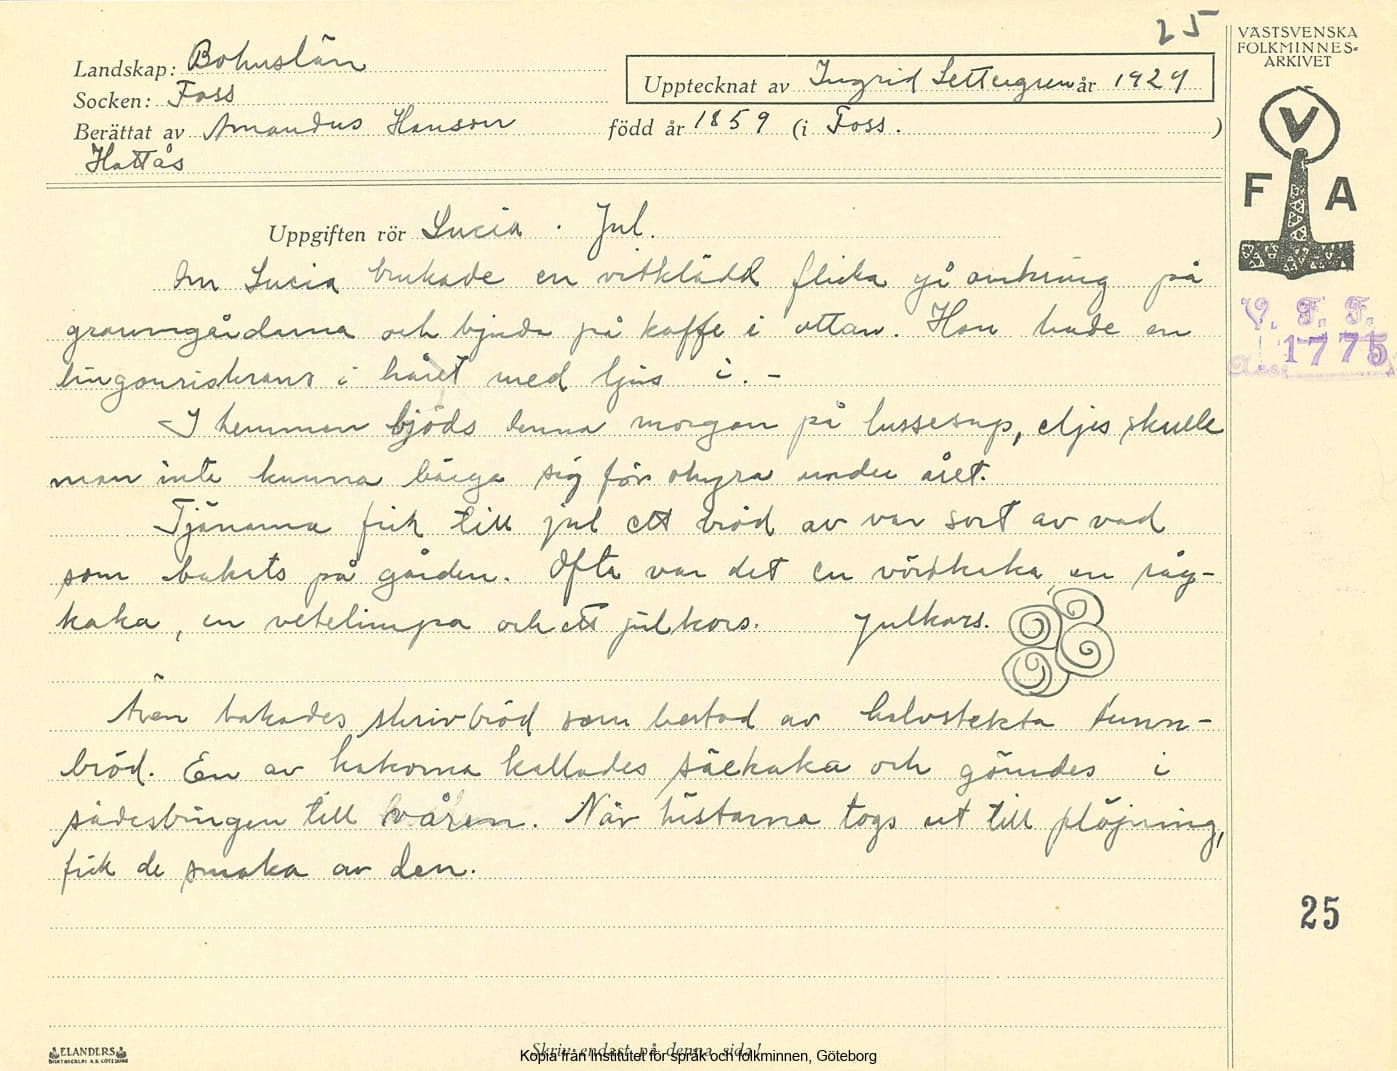 25
VÄSTSVENSKA
FOLKMINNES-
ARKIVET
Landskap: Bohuslän
Socken: Foss
Upptecknat av Ingrid Settergren år 1929
Berättat av Amandus Hanson född år 1859 (i Foss. )
Hattås
V
F A
Uppgiften rör Lucia. Jul.
Om Lucia brukade en vitklädd flicka gå omkring på
granngårdarna och bjuda på kaffe i ottan. Hon hade en
lingonriskrans i håret med ljus i. -
I hemmen bjöds denna morgon på lussesup, eljes skulle
man inte kunna bärga sig för ohyra under året.
Tjänarna fick till jul ett bröd av var sort av vad
som bakats på gården. Ofta var det en vörtkaka, en råg-
kaka, en vetelimpa och ett julkors. Julkors.
Även bakades skrivbröd som bestod av halvstekta tunn-
bröd. En av kakorna kallades såekaka och gömdes i
sädesbingen till våren. När hästarna togs ut till plöjning,
fick de smaka av den.
V. F. F.
1775
25
ELANDERS
BOKTRYCKERI A.B. GÖTEBORG
Skriv endast på denna sida!
Kopia från Institutet för språk och folkminnen, Göteborg